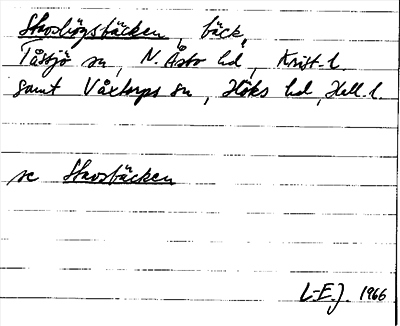 Stavshögsbäcken, bäck,
Tåssjö sn, N. Åsbo hd, Krist. l.
samt Våxtorps sn, Höks hd, Hall. l.
se Stavsbäcken
L-E.J. 1966